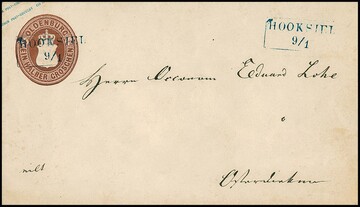 OLDENBURG
EIN HALBER GROSCHEN
HOOKSIEL
9/1
HOOKSIEL
9/1
Herrn Eduard Lohe